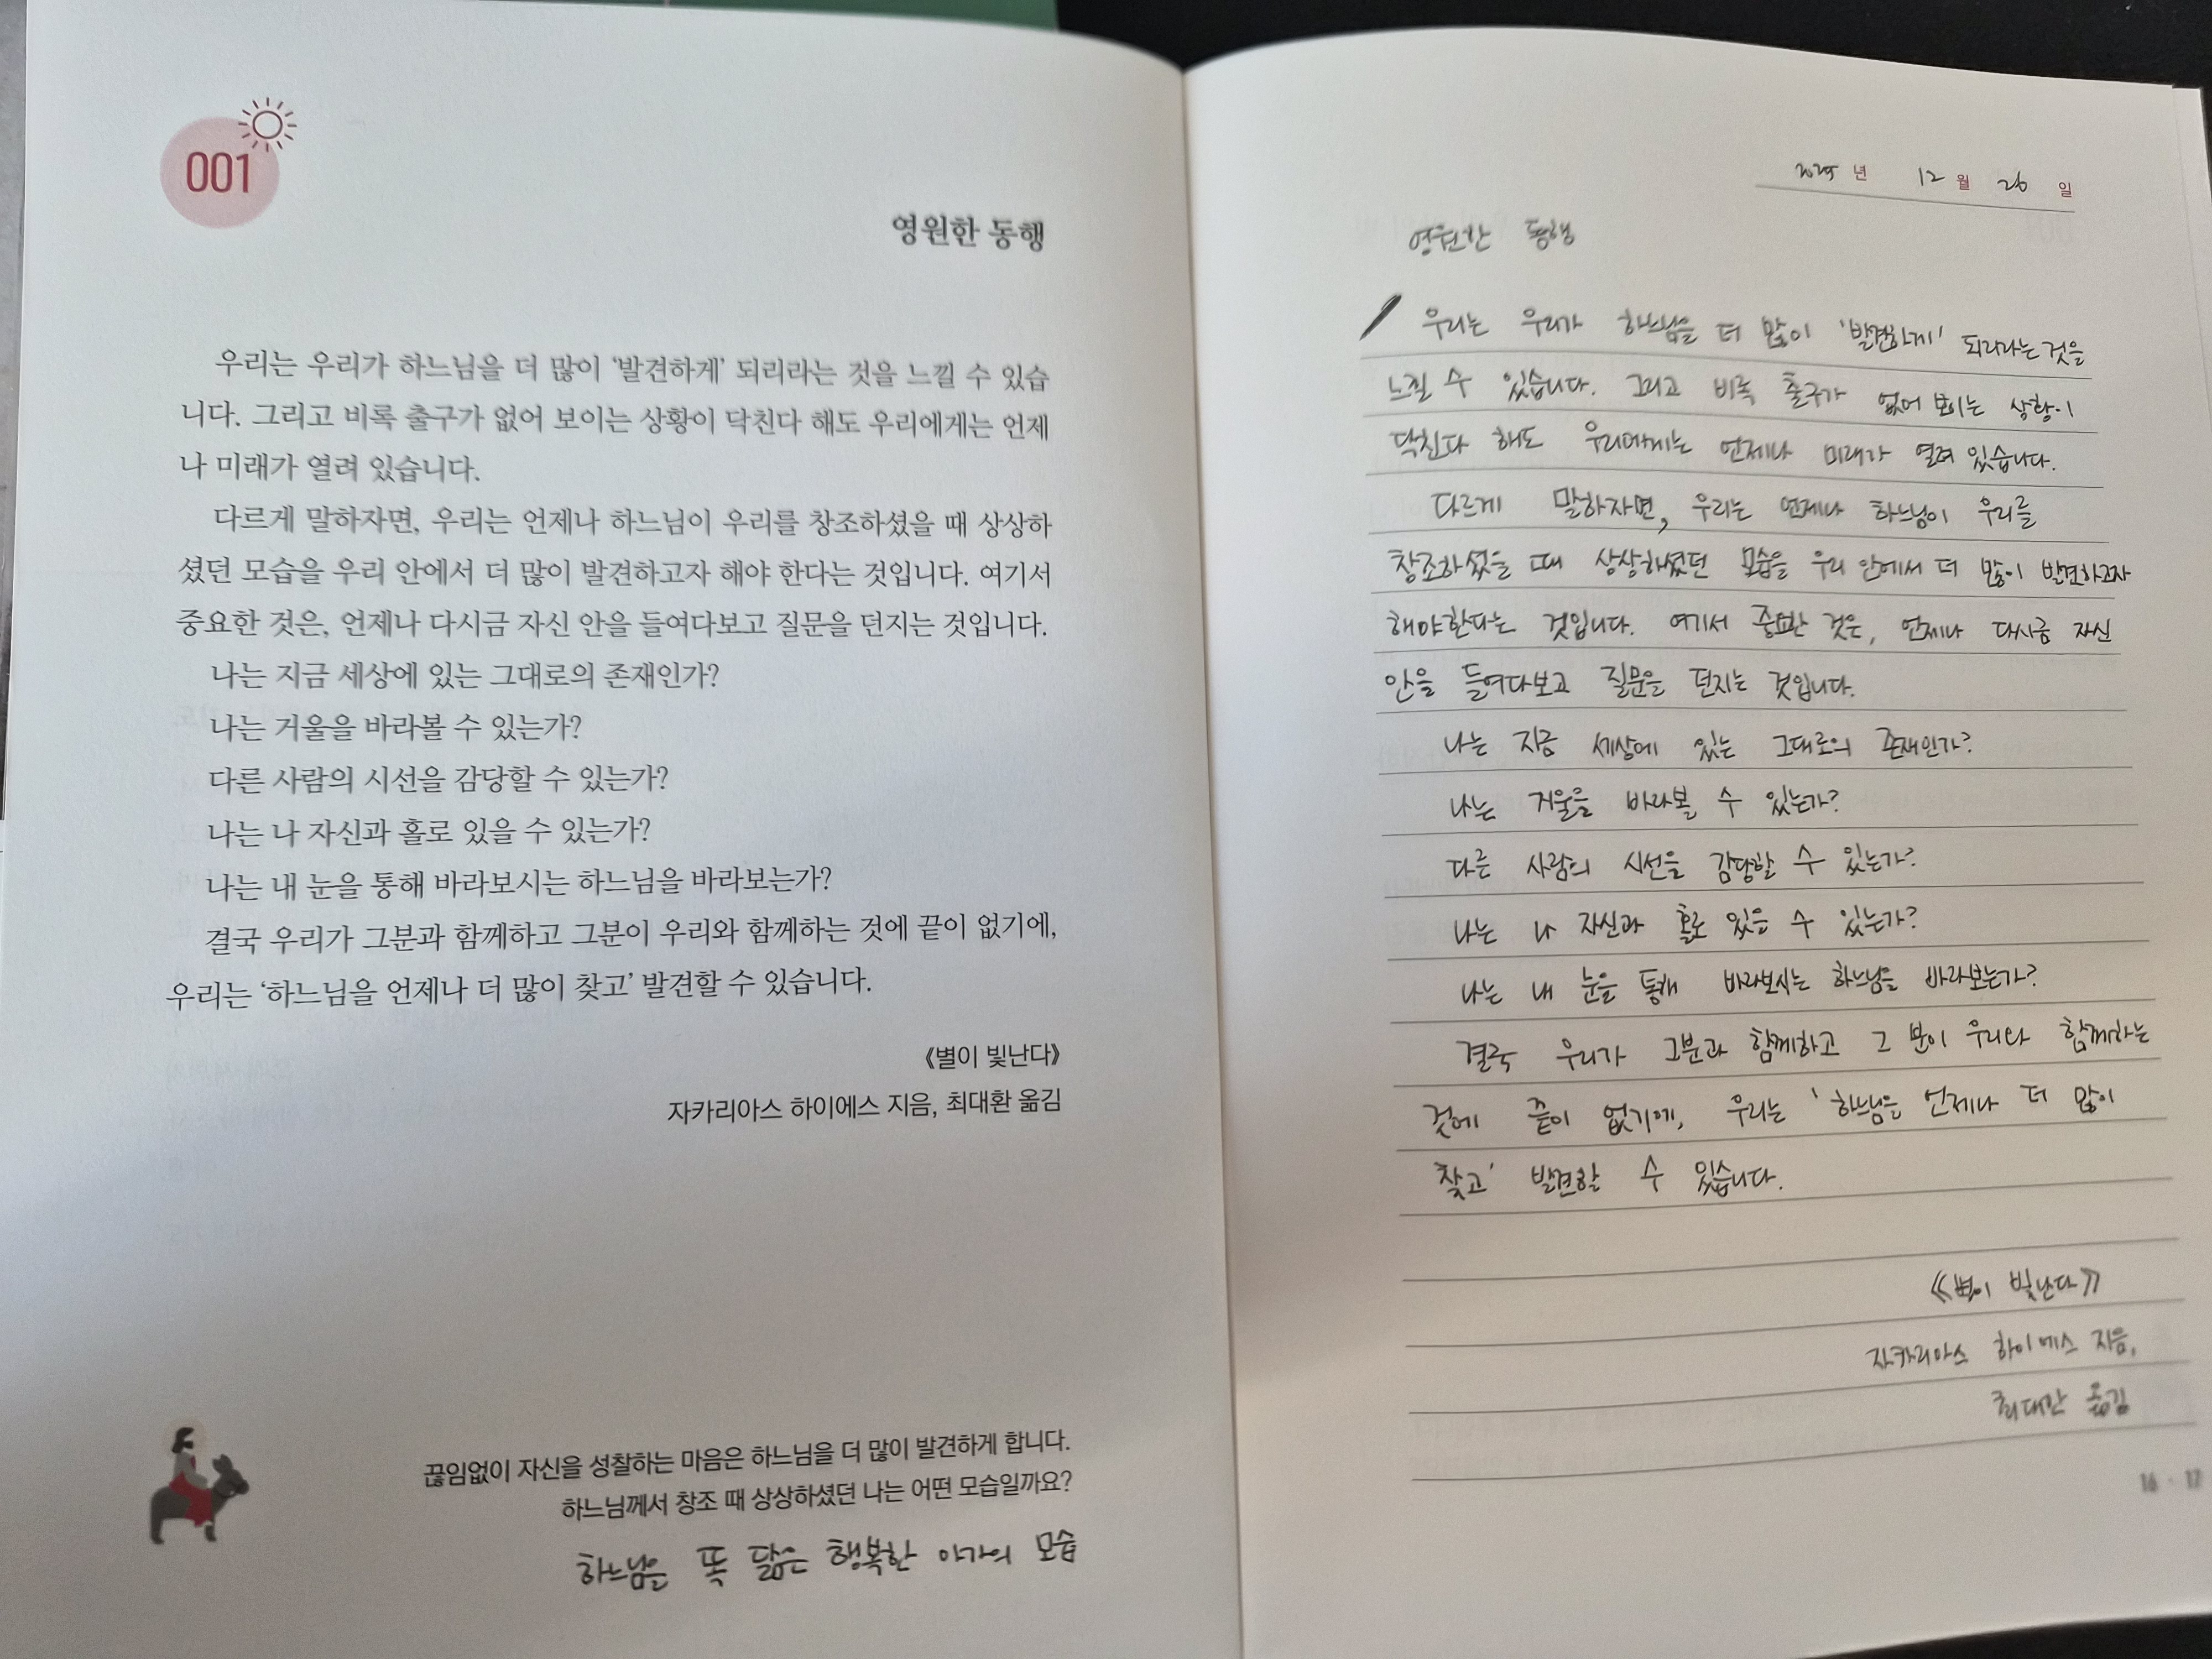 001
영원한 동행
우리는 우리가 하느님을 더 많이 ‘발견하게’ 되리라는 것을 느낄 수 있습
니다. 그리고 비록 출구가 없어 보이는 상황이 닥친다 해도 우리에게는 언제
나 미래가 열려 있습니다.
다르게 말하자면, 우리는 언제나 하느님이 우리를 창조하셨을 때 상상하
셨던 모습을 우리 안에서 더 많이 발견하고자 해야 한다는 것입니다. 여기서
중요한 것은, 언제나 다시금 자신 안을 들여다보고 질문을 던지는 것입니다.
나는 지금 세상에 있는 그대로의 존재인가?
나는 거울을 바라볼 수 있는가?
다른 사람의 시선을 감당할 수 있는가?
나는 나 자신과 홀로 있을 수 있는가?
나는 내 눈을 통해 바라보시는 하느님을 바라보는가?
결국 우리가 그분과 함께하고 그분이 우리와 함께하는 것에 끝이 없기에,
우리는 ‘하느님을 언제나 더 많이 찾고’ 발견할 수 있습니다.
《별이 빛난다》
자카리아스 하이에스 지음, 최대환 옮김
끊임없이 자신을 성찰하는 마음은 하느님을 더 많이 발견하게 합니다.
하느님께서 창조 때 상상하셨던 나는 어떤 모습일까요?
하느님을 똑 닮은 행복한 아가의 모습
2025 년 12 월 26 일
영원한 동행
우리는 우리가 하느님을 더 많이 '발견하게' 되리라는 것을
느낄 수 있습니다. 그리고 비록 출구가 없어 보이는 상황이
닥친다 해도 우리에게는 언제나 미래가 열려 있습니다.
다르게 말하자면, 우리는 언제나 하느님이 우리를
창조하셨을 때 상상하셨던 모습을 우리 안에서 더 많이 발견하고자
해야한다는 것입니다. 여기서 중요한 것은, 언제나 다시금 자신
안을 들여다보고 질문을 던지는 것입니다.
나는 지금 세상에 있는 그대로의 존재인가?
나는 거울을 바라볼 수 있는가?
다른 사람의 시선을 감당할 수 있는가?
나는 나 자신과 홀로 있을 수 있는가?
나는 내 눈을 통해 바라보시는 하느님을 바라보는가?
결국 우리가 그분과 함께하고 그 분이 우리와 함께하는
것에 끝이 없기에, 우리는 '하느님을 언제나 더 많이
찾고' 발견할 수 있습니다.
《별이 빛난다》
자카리아스 하이에스 지음,
최대환 옮김
16 · 17